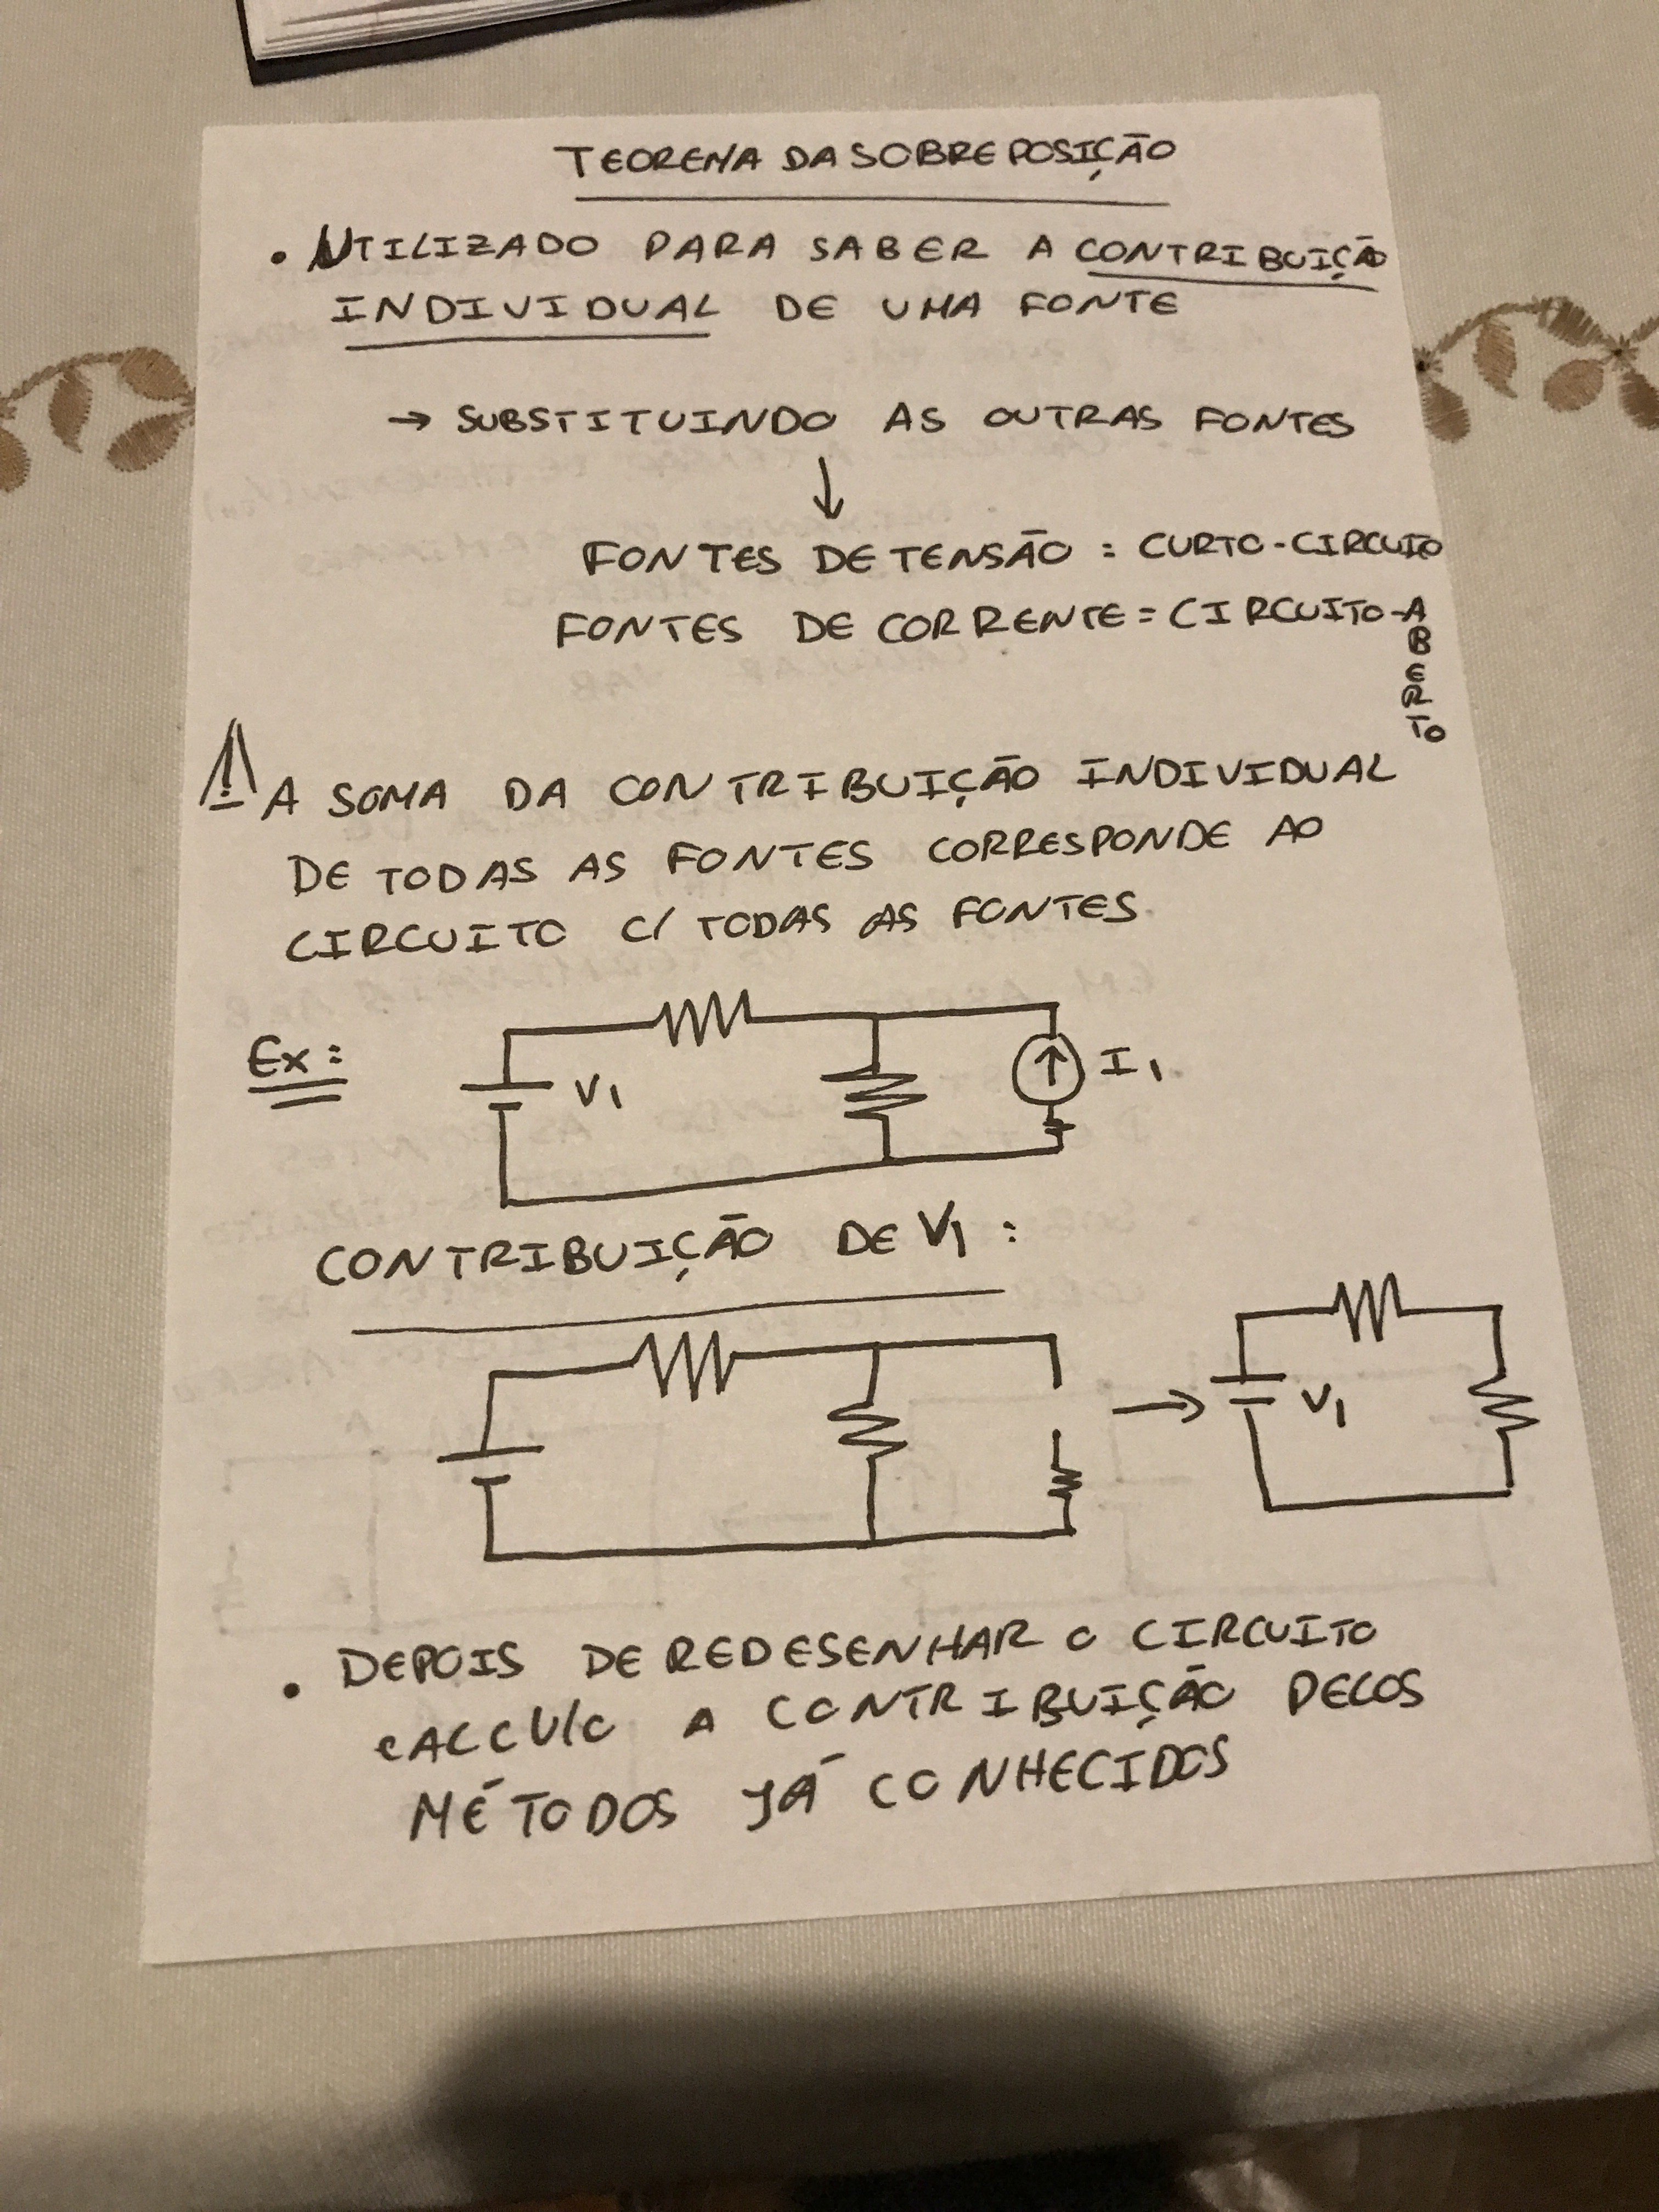 TEOREMA DA SOBREPOSIÇÃO
• UTILIZADO PARA SABER A CONTRIBUIÇÃO
INDIVIDUAL DE UMA FONTE
→ SUBSTITUINDO AS OUTRAS FONTES
↓
FONTES DE TENSÃO = CURTO-CIRCUITO
FONTES DE CORRENTE = CIRCUITO-A
B
E
R
TO
! A SOMA DA CONTRIBUIÇÃO INDIVIDUAL
DE TODAS AS FONTES CORRESPONDE AO
CIRCUITO C/ TODAS AS FONTES.
Ex:
V1
I1
CONTRIBUIÇÃO DE V1:
→
V1
• DEPOIS DE REDESENHAR O CIRCUITO
CALCULO A CONTRIBUIÇÃO PELOS
MÉTODOS JÁ CONHECIDOS